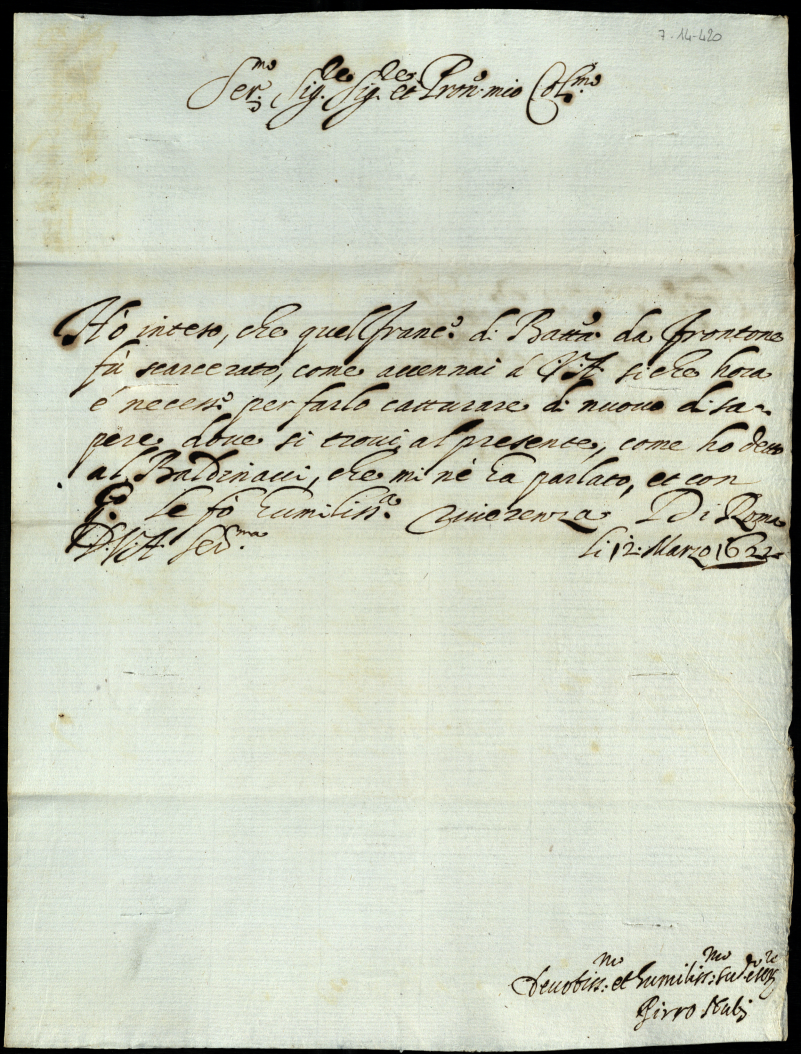 7-14-420
Ser.mo Sig.re Sig.re et Pron. mio Col.mo
Hò inteso, che quel Franc.o di Batta. da Frontone
fù scarcerato, come accennai à V.A. si che hora
è necess.o per farlo catturare di nuovo di sa-
pere dove si trovi al presente, come ho detto
al Baldinacci, che mi nè ha parlato, et con
le fò humiliss.a riverenza Di Roma
li 12. Marzo 1622
D. V. A. Ser.ma
Devotiss.mo et humiliss.mo ser.re
Pirro